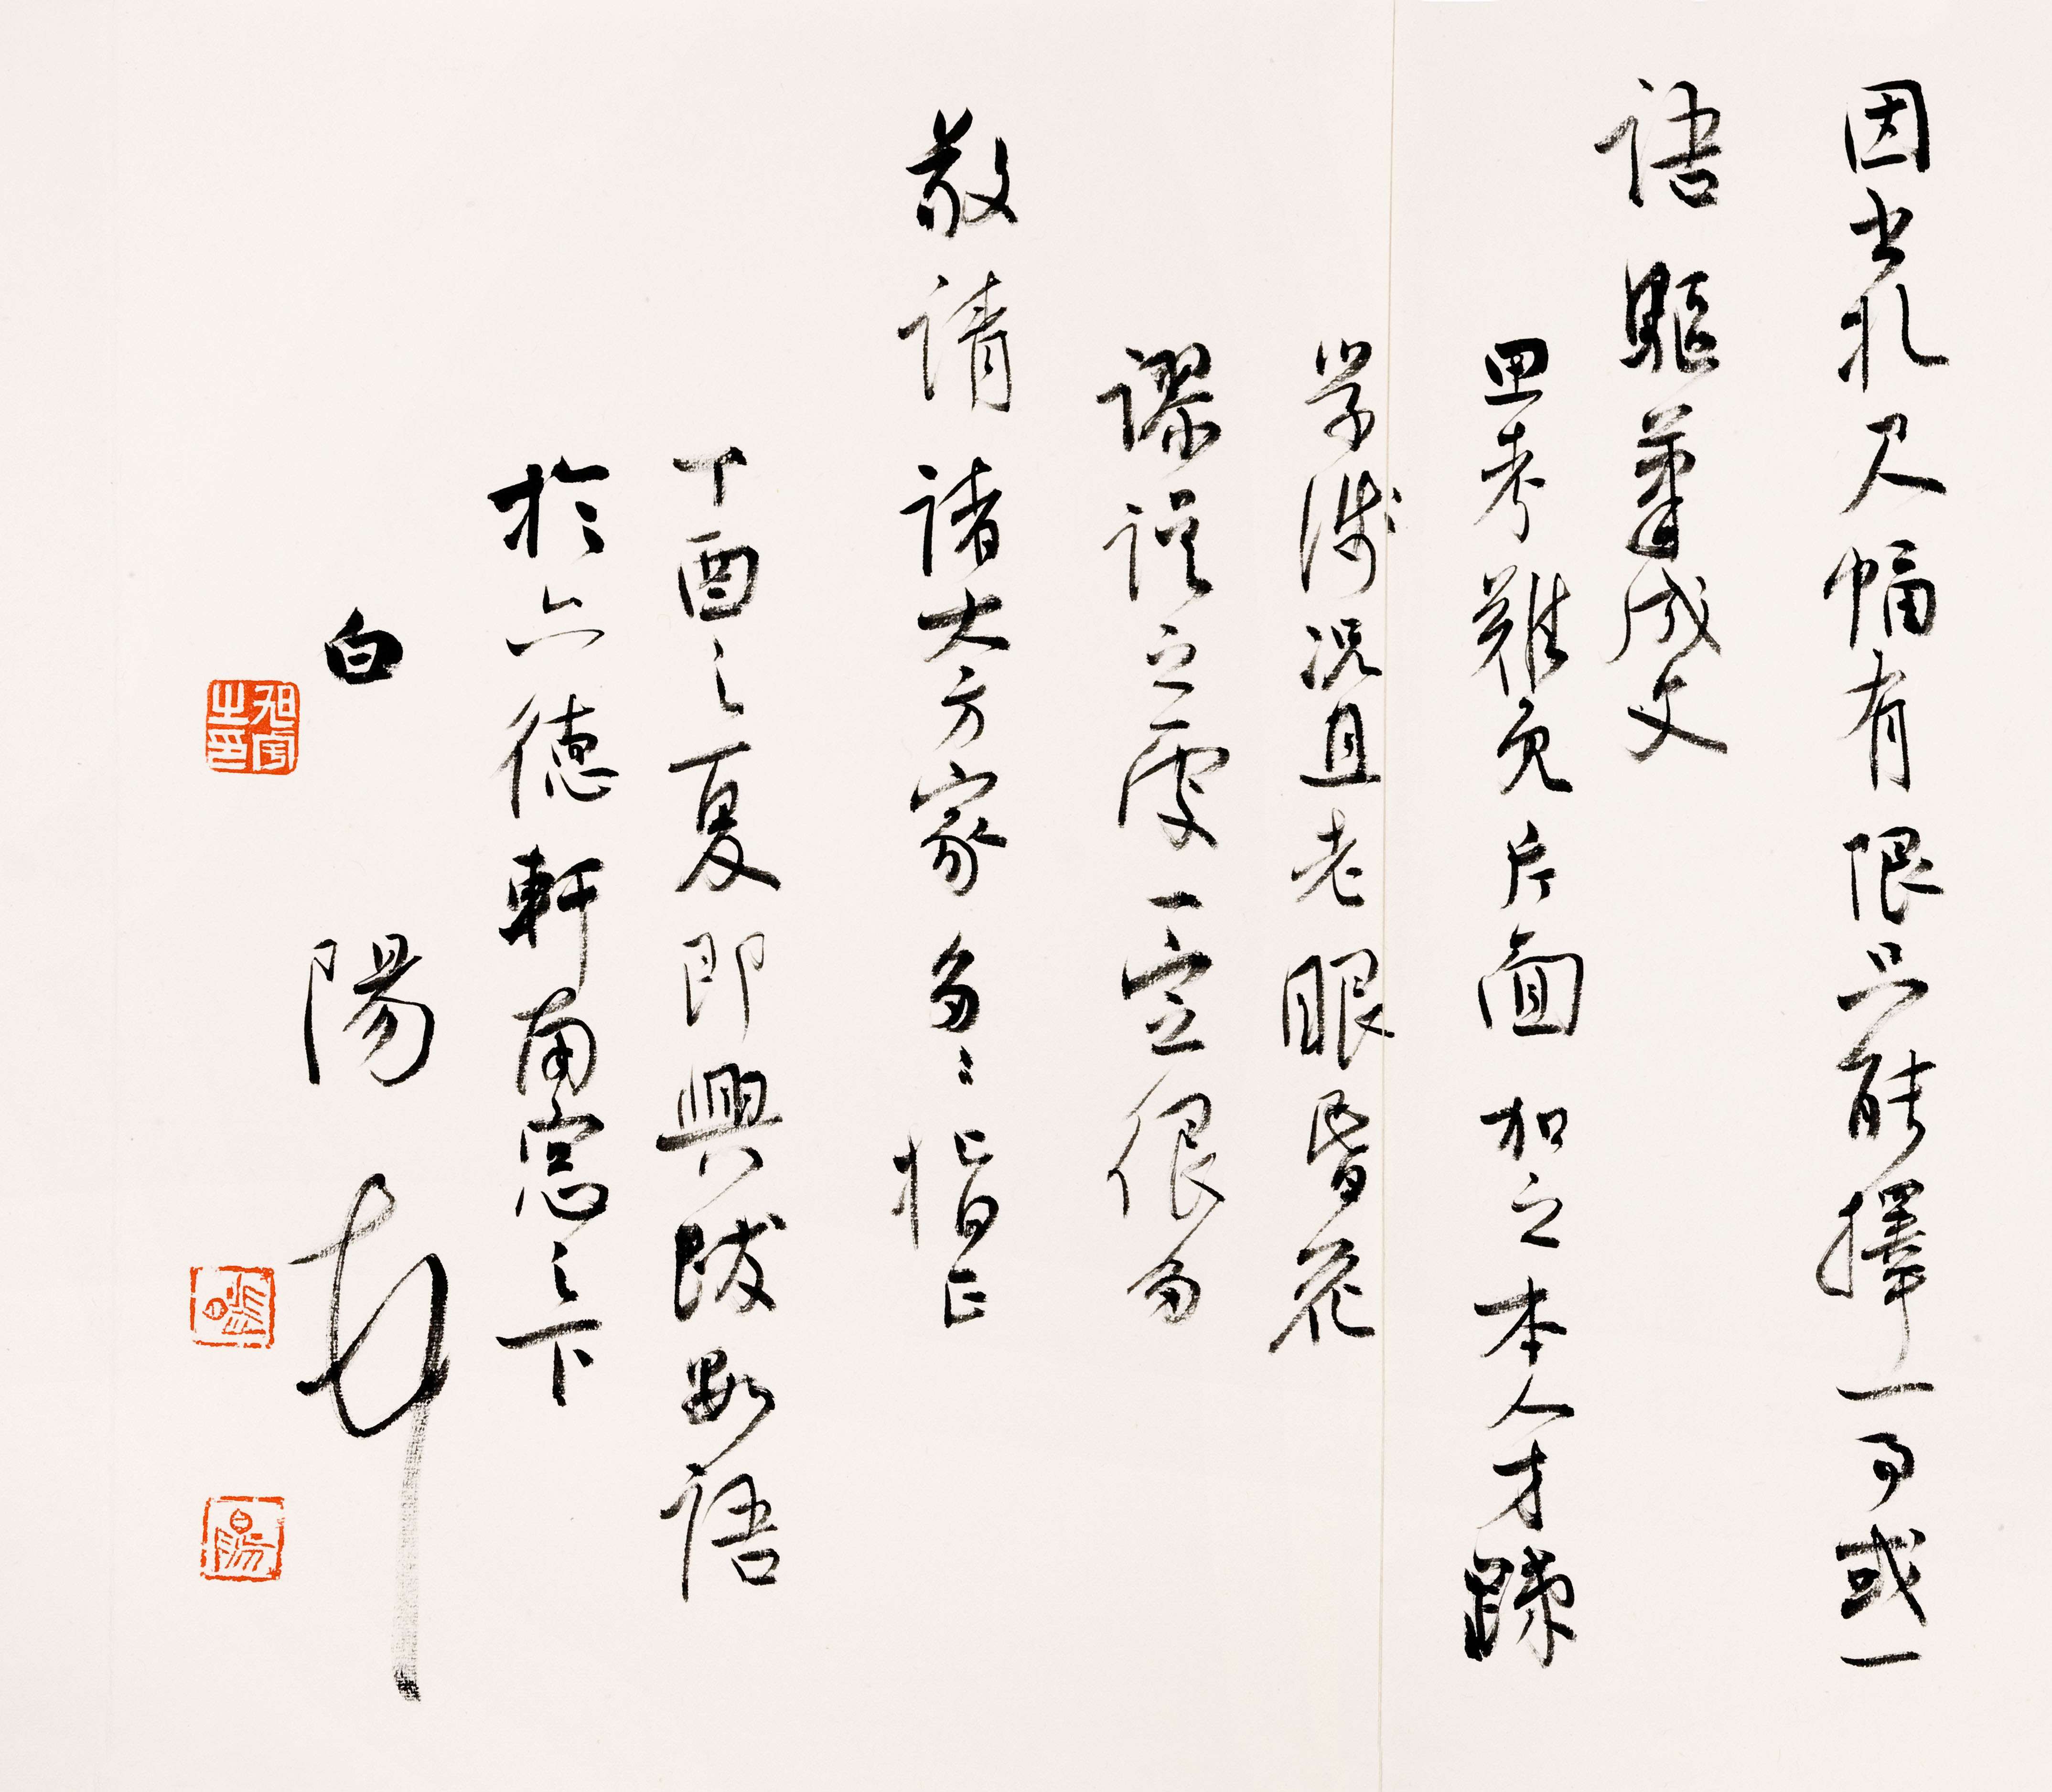 因書札尺幅有限只能擇一事或一
語驅筆成文
思考難免片面加之本人才疎
学淺况且老眼昏花
謬誤之處一定很多
敬請諸大方家多多指正
丁酉之夏即興跋數語
於六德軒南窓之下
白陽